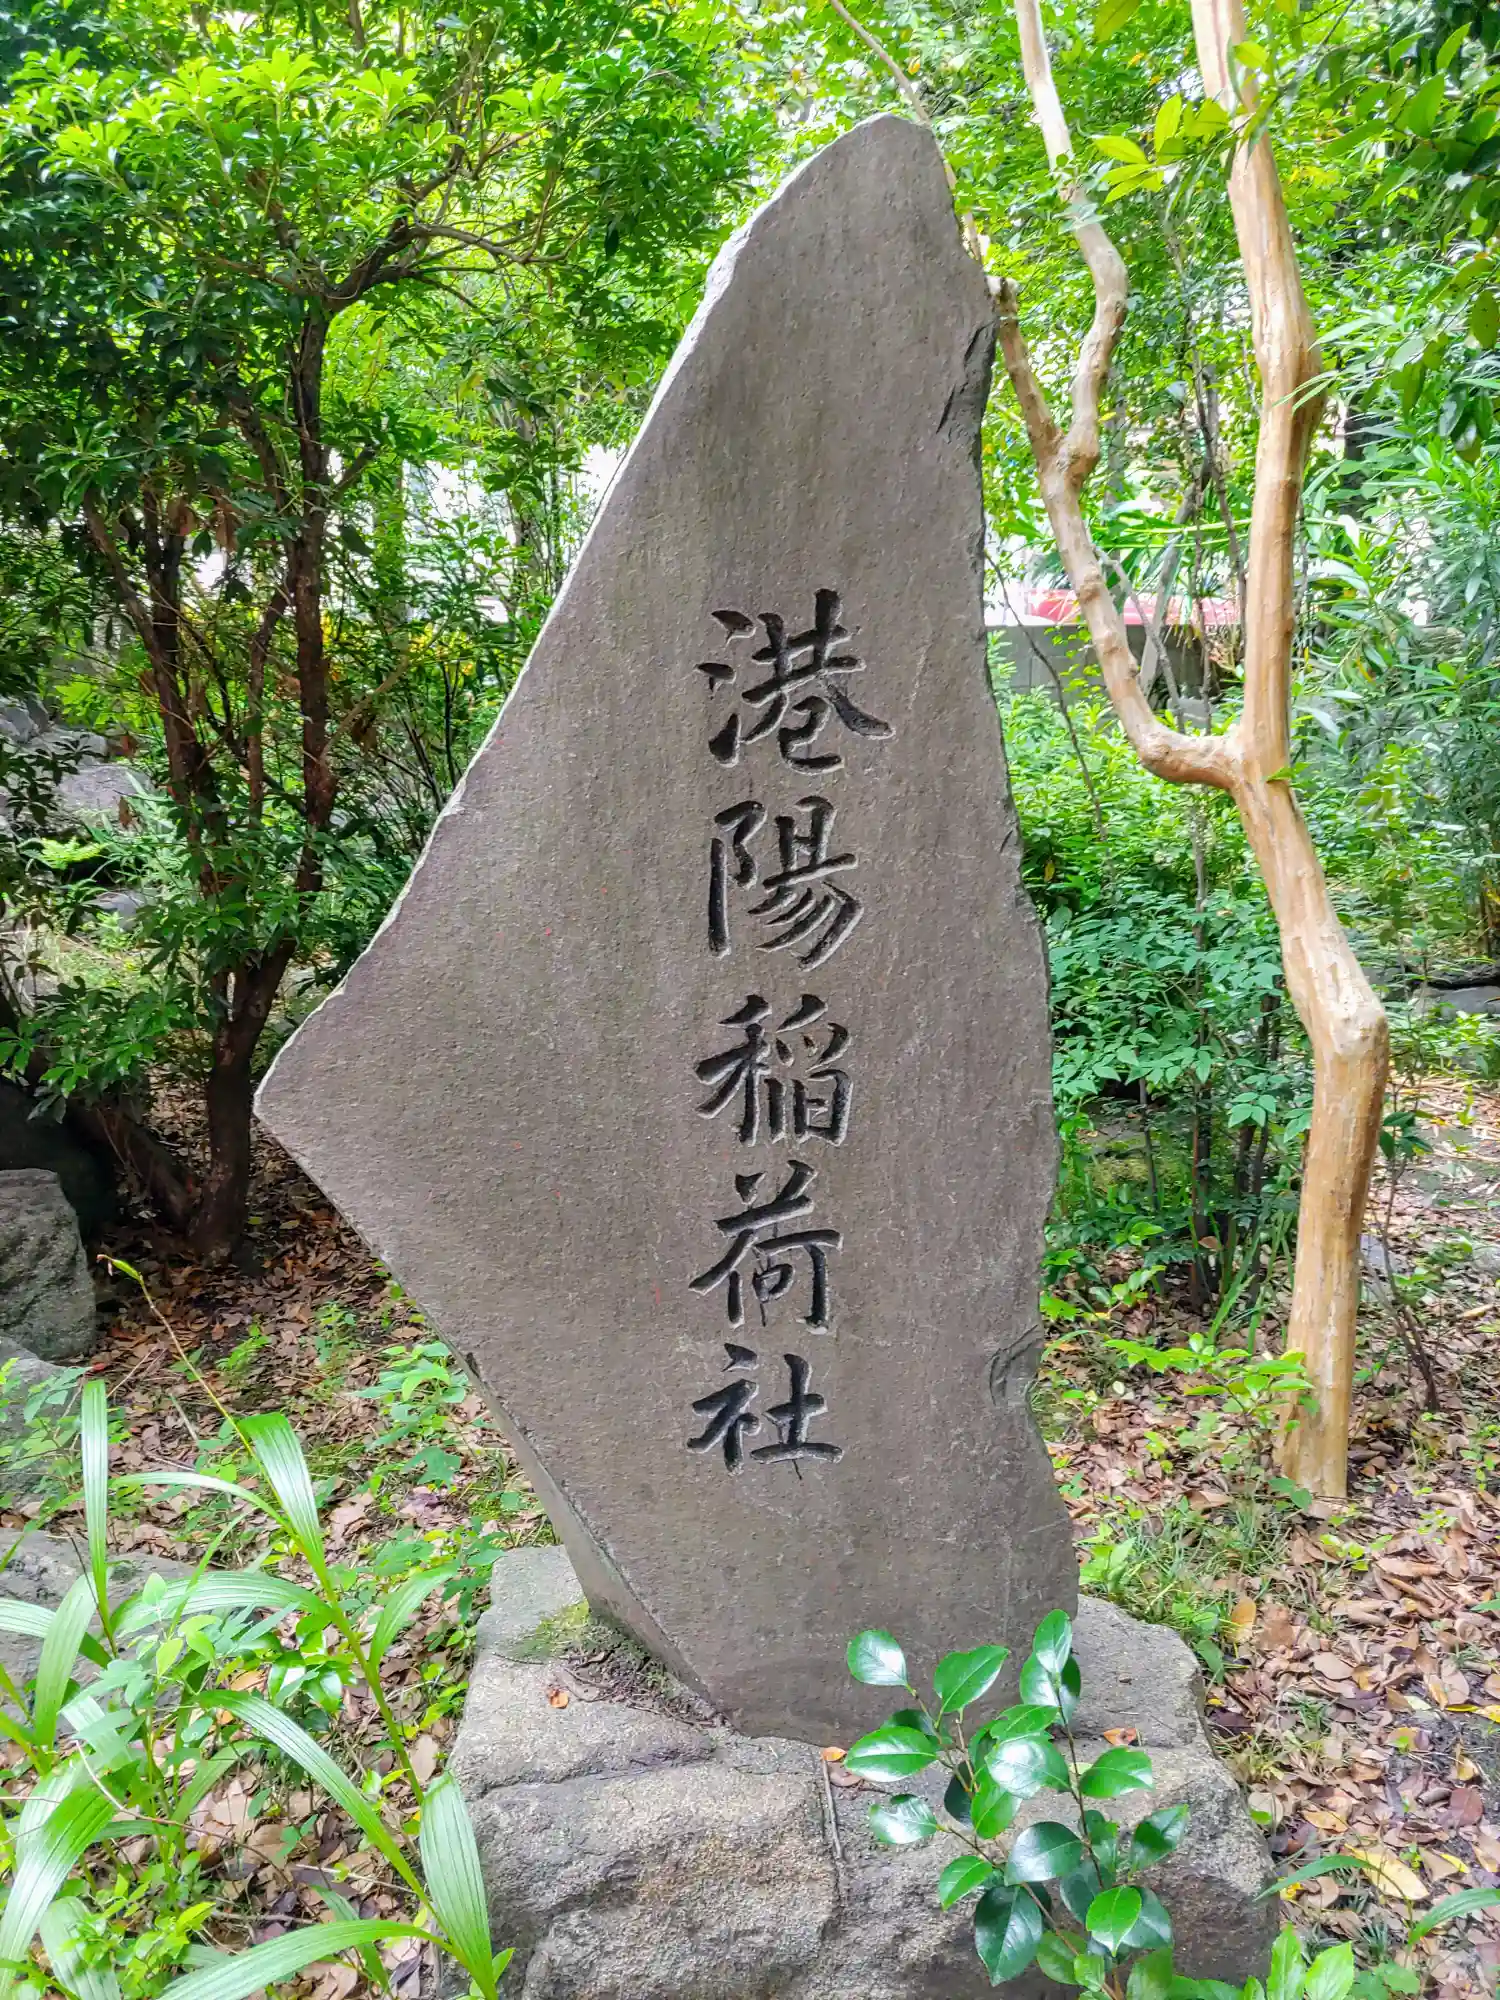 港陽稲荷社